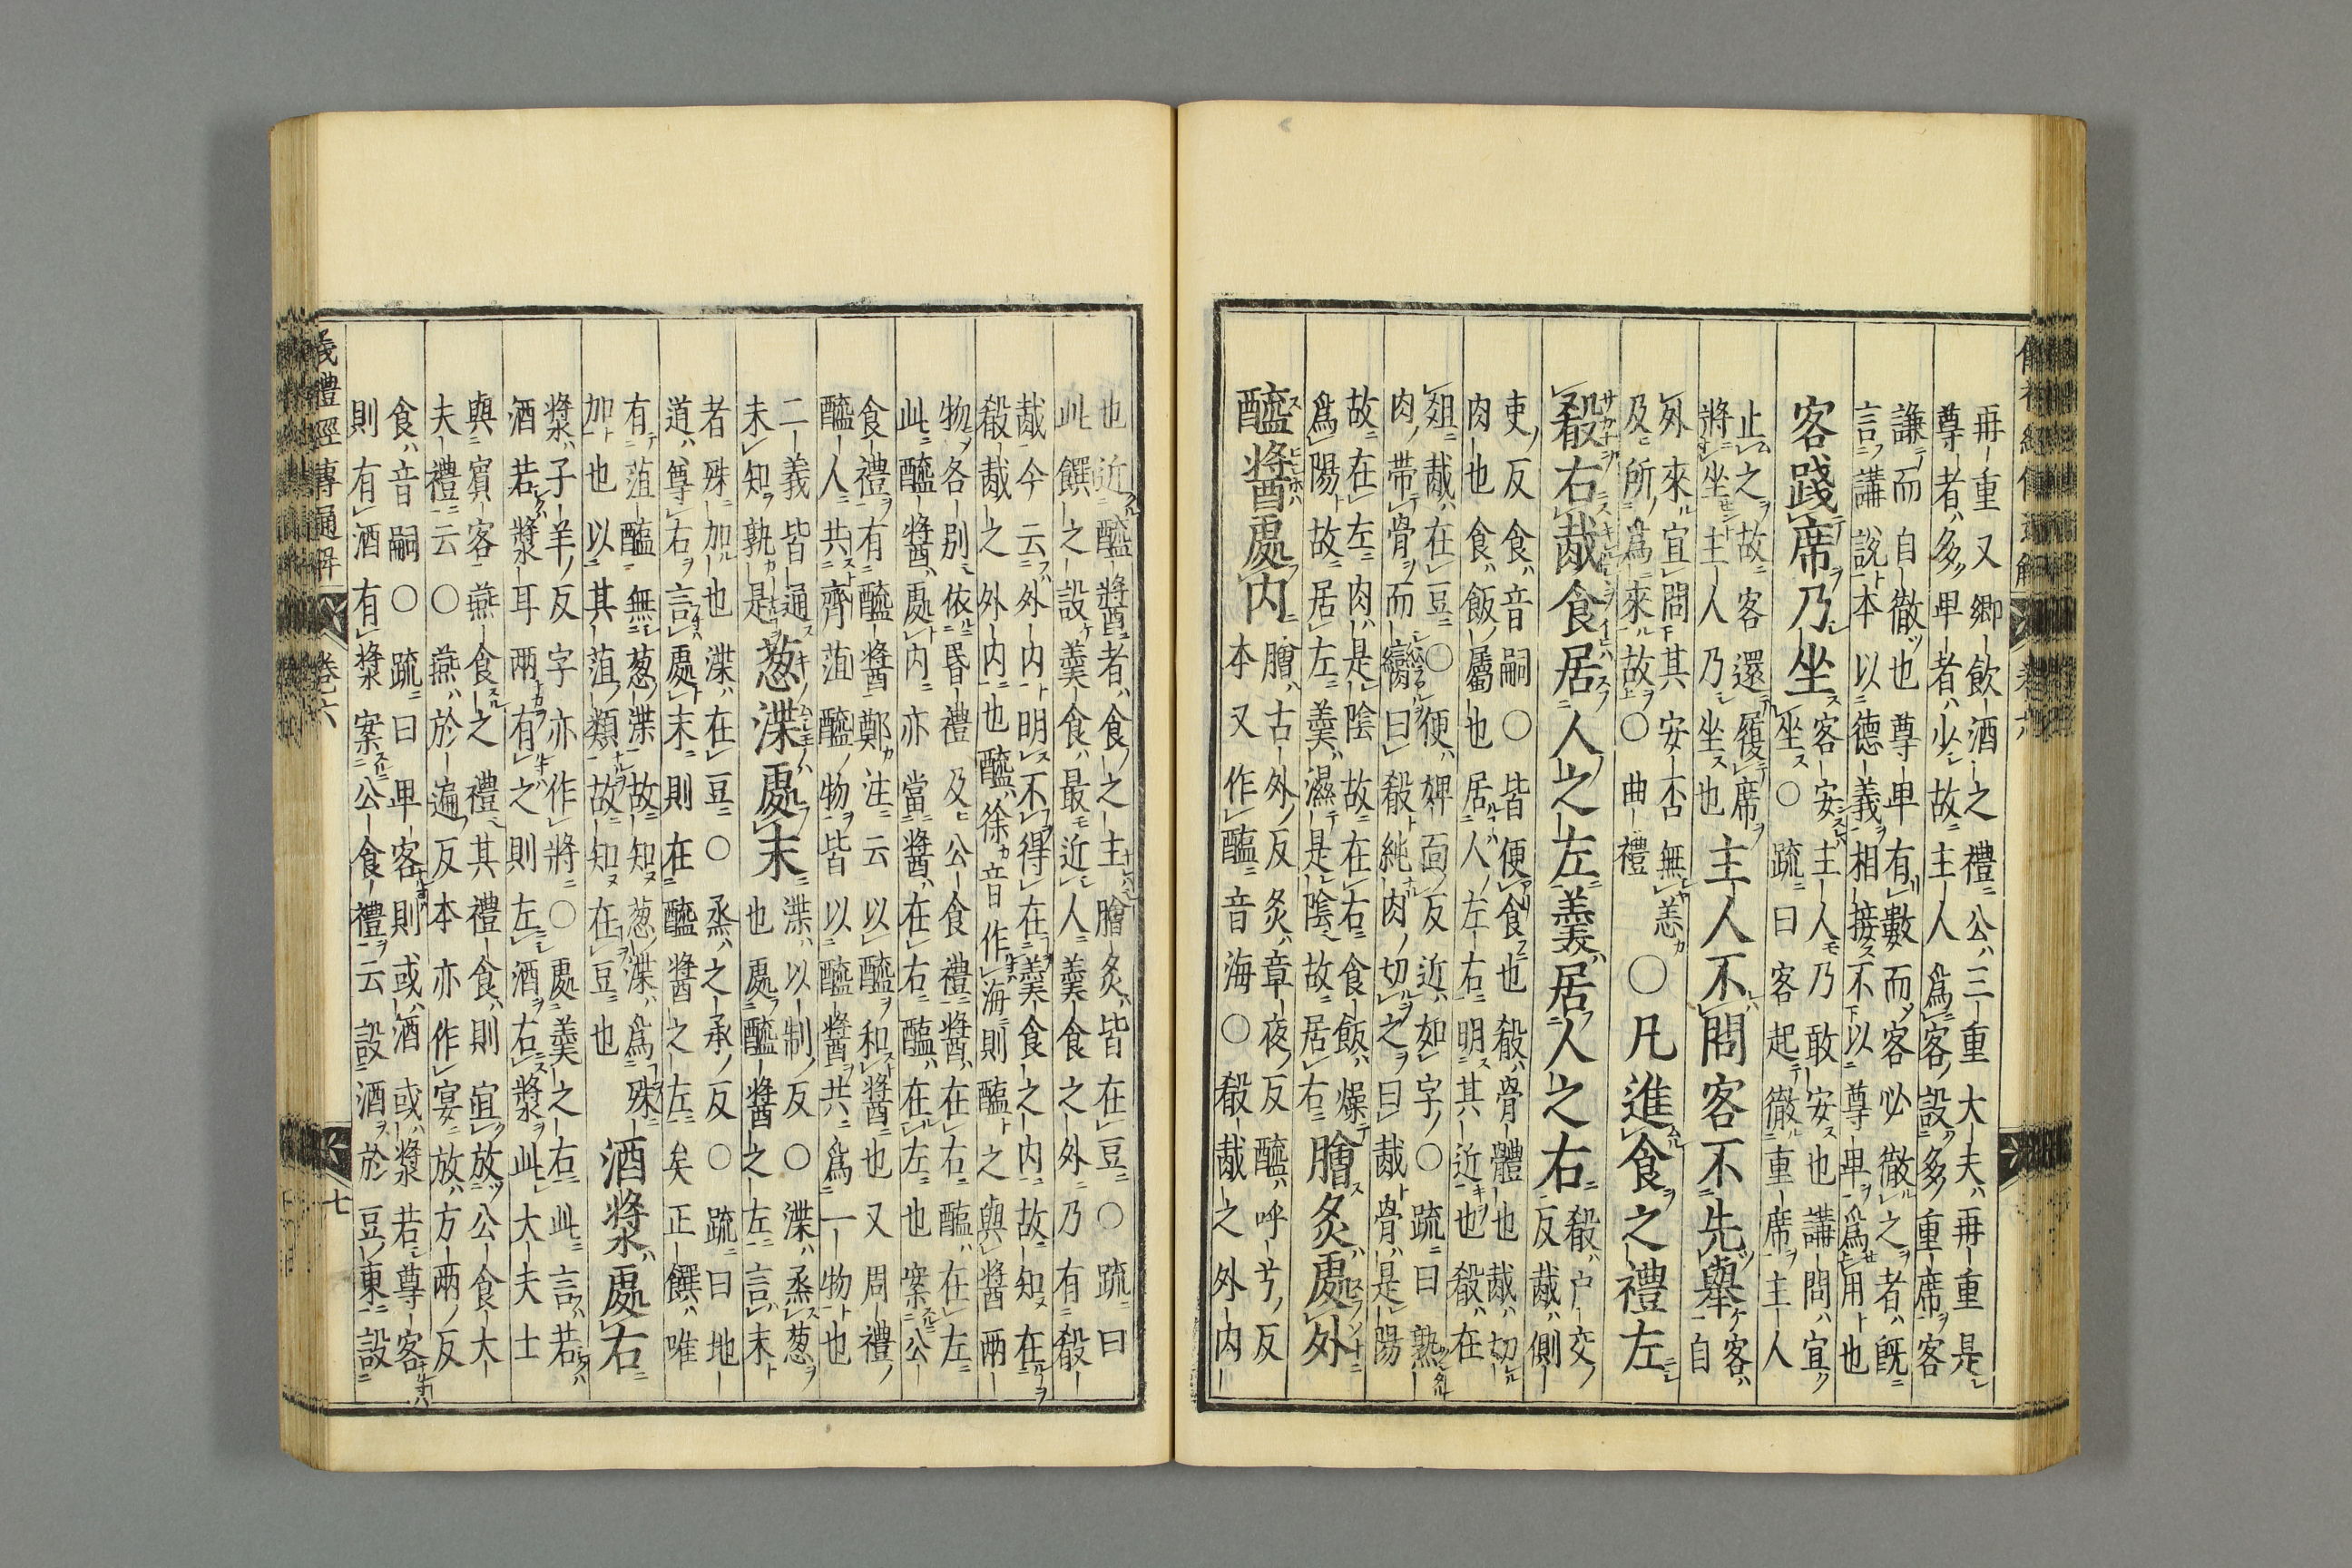 再重又卿飲酒之禮公三重大夫再重是
尊者多卑者少故主人爲客設多重席客
謙而自徹也尊卑有數而客必徹之者既
言講說本以德義相接不以尊卑爲用也
客踐席乃坐客安主人乃敢安也講問宜
坐○疏曰客起徹重席主人
止之故客還履席
將坐主人乃坐也主人不問客不先舉客
自
外來宜問其安否無恙
及所爲來故○曲禮○凡進食之禮左
殽右胾食居人之左羹居人之右殽戶交
反胾側
吏反食音嗣○皆便食也殽骨體也胾切
肉也食飯屬也居人左右明其近也殽在
俎胾在豆○便婢面反近如字○疏曰熟
肉帶骨而臠曰殽純肉切之曰胾骨是陽
故在左肉是陰故在右食飯燥
爲陽故居左羹濕是陰故居右膾炙處外
醯醬處内膾古外反炙章夜反醯呼兮反
本又作醢音海○殽胾之外内
也近醯醬者食之主膾炙皆在豆○疏曰
此饌之設羹食最近人羹食之外乃有殽
胾今云外内明不得在羹食之内故知在
殽胾之外内也醯徐音作海則醢之與醬兩
物各別依昏禮及公食禮醬在右醢在左
此醯醬處内亦當醬在右醢在左也案公
食禮有醯醬鄭注云以醯和醬也又周禮
醯人共齊菹醯物皆以醯醬共爲一物也
二義皆通
未知孰是葱渫處末渫以制反○渫烝葱
也處醯醬之左言末
者殊加也渫在豆○烝之承反○疏曰地
道尊右言處末則在醯醬之左矣正饌唯
有菹醢無葱渫故知葱渫爲殊
加也以其菹類故知在豆也酒漿處右
漿子羊反字亦作將○處羹之右此言若
酒若漿耳兩有之則左酒右漿此大夫士
與賓客燕食之禮其禮食則宜放公食大
夫禮云○燕於遍反本亦作宴放方兩反
食音嗣○疏曰卑客則或酒或漿若尊客
則有酒有漿案公食禮云設酒於豆東設
儀禮經傳通解 卷六 七